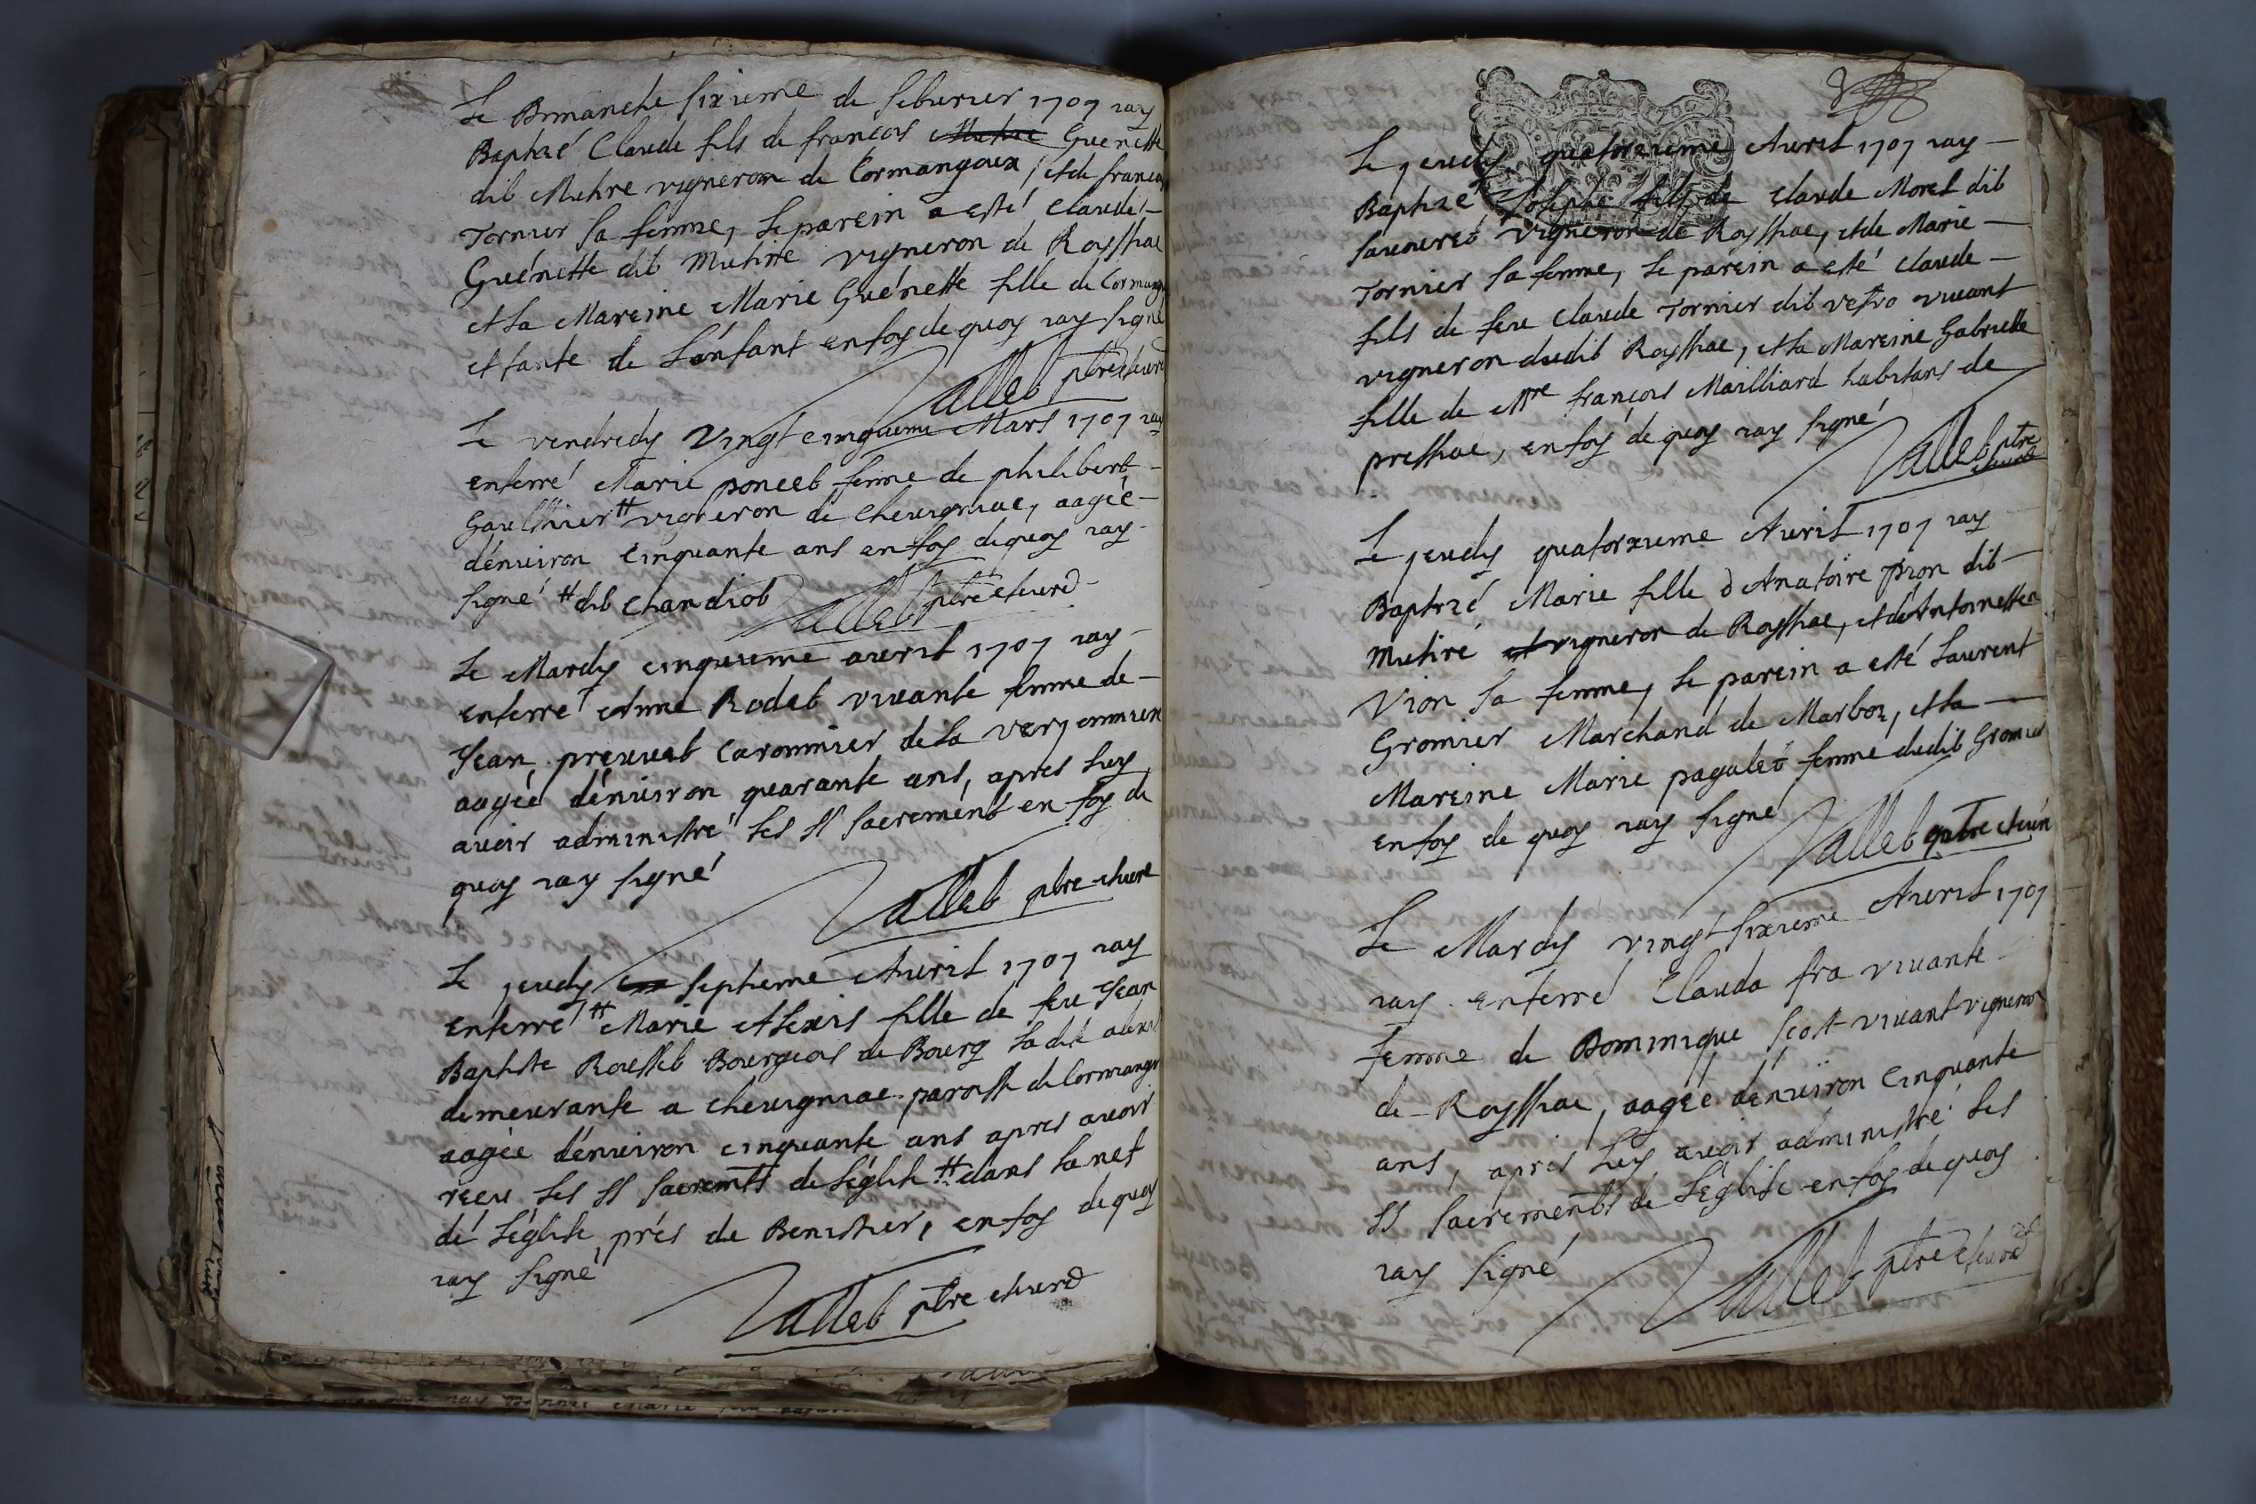 Le Dimanche sixieme de feburier 1707 iay
Baptizé Claude fils de françois Guenette
dit Mutire vigneron de Cormangoux, et de francoi
Tornier sa femme, le parein a esté Claude
Guénette dit Mutire vigneron de Roissiac
et la Mareine Marie Guénette fille de Cormang
et tante de l'énfant en foy de quoy iay signé
Vallet ptre cure
Le vendredy vingt cinquieme Mars 1707 iay
enterré Marie poncet femme de philibert
Gaulthier # vigneron de Cheuigniac, aagéé
dénuiron Cinquante ans en foy de quoy iay
signé # dit Chandiot Vallet ptre et curé
Le Mardy cinquieme avril 1707 iay
enterré Anne Rodet vivante femme de
Jean preuvet Caronnier de la verjonniere
aagéé dénuiron quarante ans, apres luy
avoir administré les sts sacreménts en foy de
quoy iay signé
Vallet ptre et cure
Le jeudy septieme Avril 1707 iay
enterré # Marie Alexis fille de feu Jean
Baptiste Rousset Bourgeois de Bourg la dite alexis
demeurante a cheuigniac paroisse de Cormangou
aagéé dénuiron cinquante ans apres avoir
recu les sts sacremts de l'église # dans la nef
dé l'église, prés de Benistier, en foy de quoy
iay signé
Vallet ptre et curé
Le jeudy quatorzieme Auril 1707 iay
Baptizé Joseph fils de Claude Morel dit
vigneron de Roissiac, et de Marie
Tornier sa femme, le parein a esté Claude
fils de feu Claude Tornier dit vetro vivant
vigneron dudit Roissiac, et la Mareine Gabrielle
fille de Mre françois Mailliard habitans de
pressiac, en foy de quoy iay signé
Vallet ptre et curé
Le jeudy quatorzieme Auril 1707 iay
Baptizé Marie fille d'Anatoire pion dit
Mutiré vigneron de Roissiac, et de Antoinette
Vion sa femme, le parein a esté Laurent
Gromier Marchand de Marboz, et la
Mareine Marie pagulet femme dudit Gromier
en foy de quoy iay signé
Vallet ptre et curé
Le Mardy vingt sixieme Auril 1707
iay enterré Clauda fra vivante
femme de Dominique Scot vivant vigneron
de Roissiac, aagéé dénuiron Cinquante
ans, aprés luy avoir administré les
sts sacreménts de l'église en foy de quoy
iay signé
Vallet ptre et curé